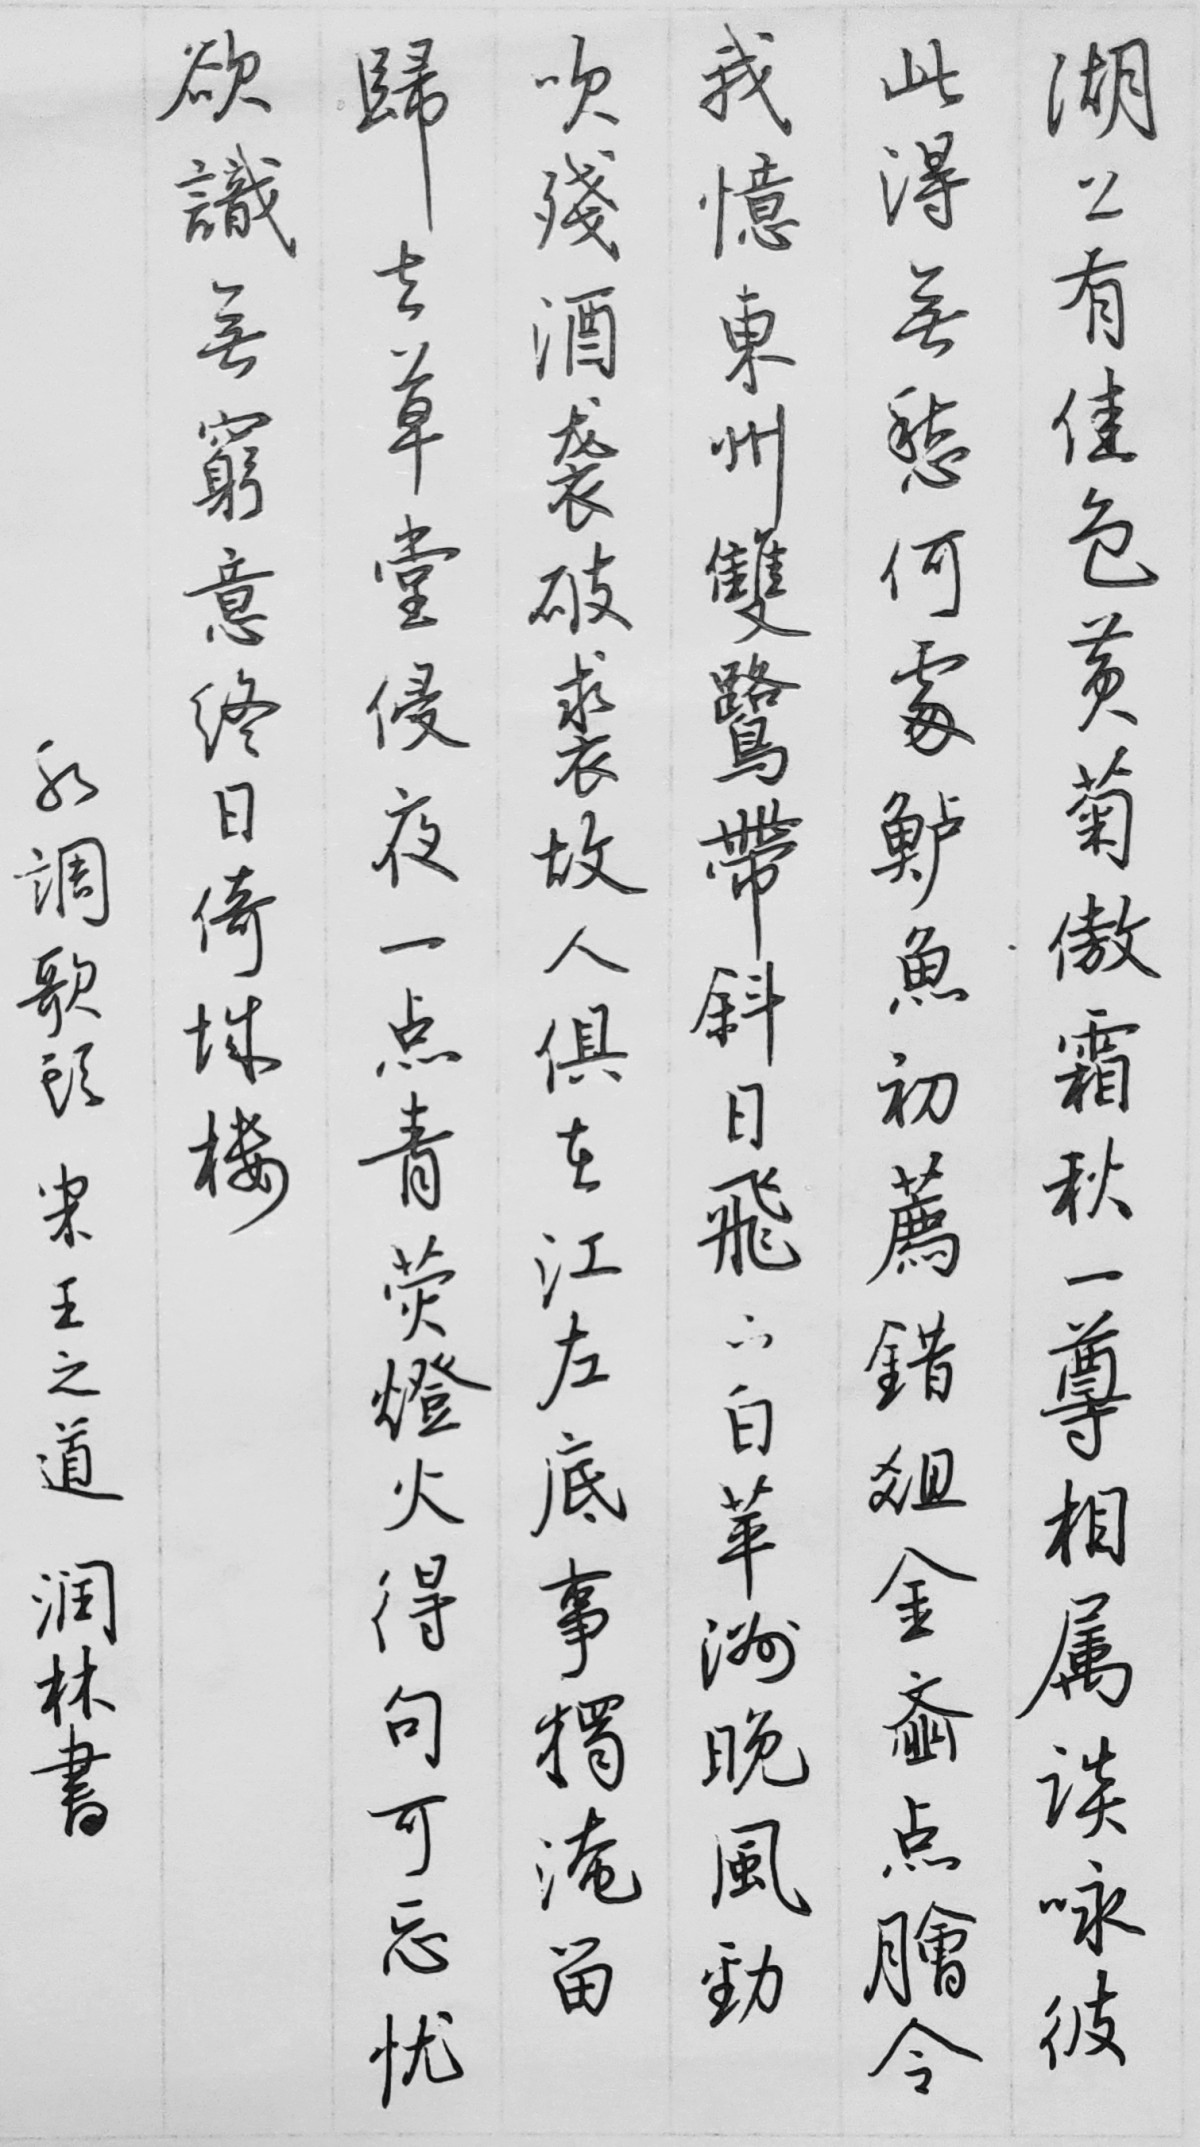 湖上有佳色黄菊傲霜秋一尊相属谈咏彼
此得無愁何處鲈魚初薦錯俎金齑点膾令
我憶東州雙鷺帶斜日飛下白苹洲晚風勁
吹殘酒袭破裘故人俱在江左底事獨淹留
歸去草堂侵夜一点青荧燈火得句可忘忧
欲識無窮意終日倚城楼
水調歌頭 宋王之道 润林書